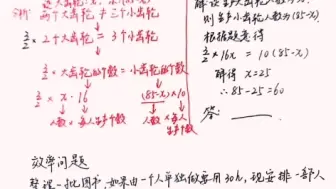 两个大齿轮 ≠ 三个小齿轮
3/2 × 2个大齿轮 = 3个小齿轮
3/2 × 大齿轮的个数 = 小齿轮个数
3/2 · x · 16 (85-x)×10
人数 × 每人生产个数 人数 × 每人生产个数
则生产小齿轮人数为(85-x)
根据题意得
3/2 × 16x = 10(85-x)
解得 x=25
∴85-25=60
答:
效率问题
整理一批图书,如果由一个人单独做要用30h,现安排一部人